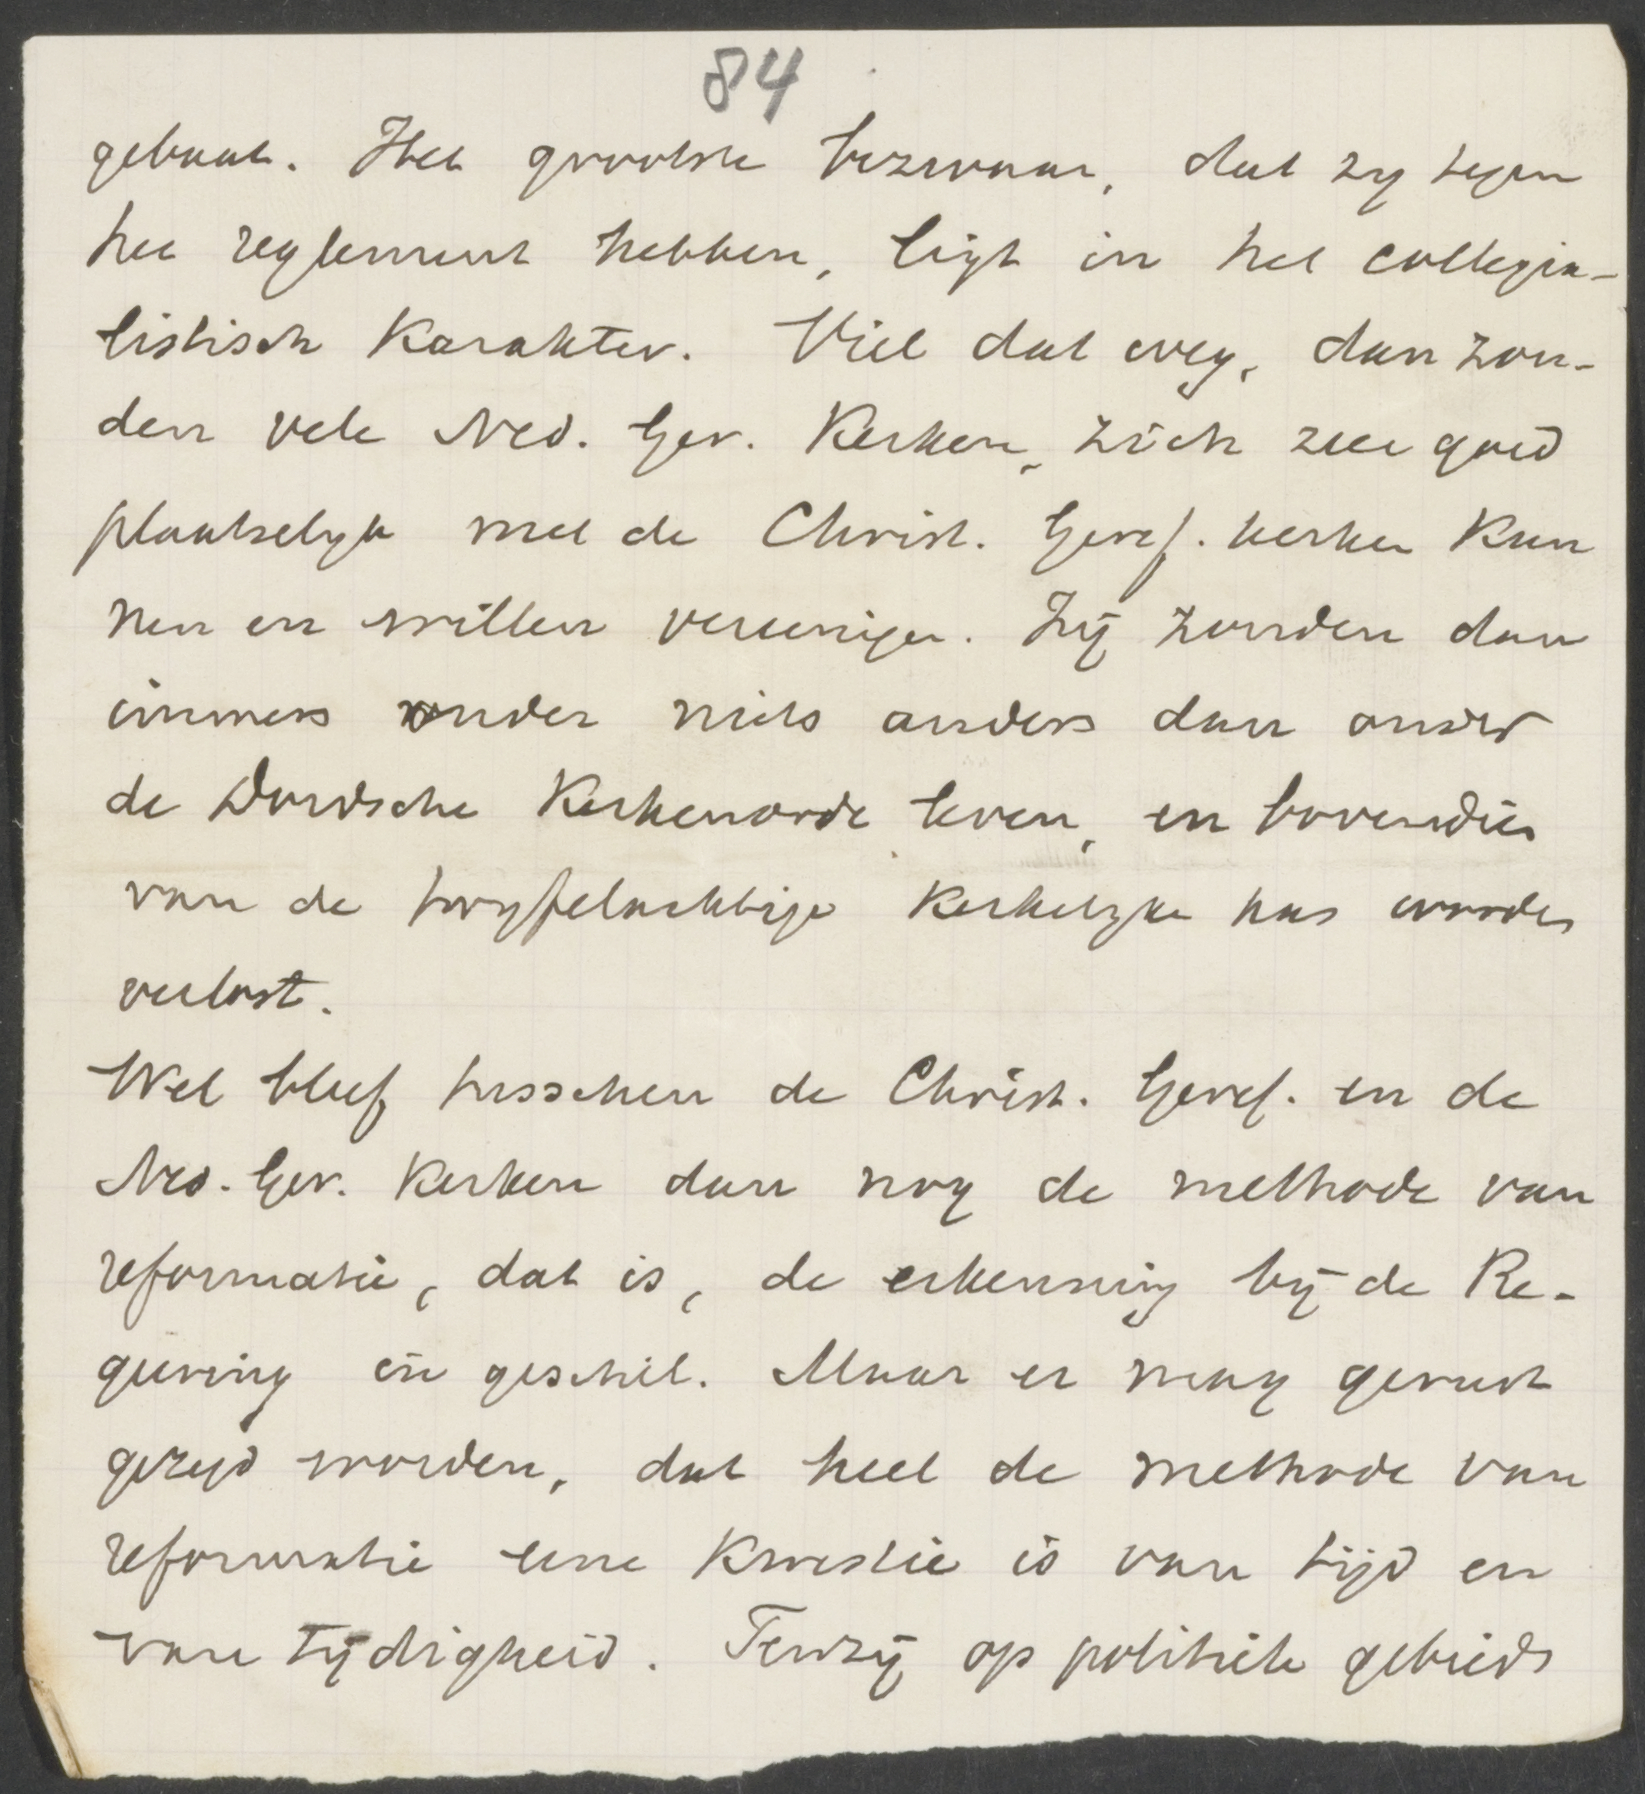 84
gebaat. Het grootste bezwaar, dat zij tegen
het reglement hebben, ligt in het collegia-
listisch karakter. Viel dat weg, dan zou-
den vele Ned. Ger. Kerken, zich zeer goed
plaatselijk met de Christ. Geref. kerken kun
nen en willen vereenigen. Zij zouden dan
immers onder niets anders dan onder
de Dordsche Kerkenorde leven, en bovendien
van de twijfelachtige Kerkelijke kas worden
verlost.
Wel bleef tusschen de Christ. Geref. en de
Ned. Ger. Kerken dan nog de methode van
reformatie, dat is, de erkenning bij de Re-
geering in geschil. Maar er mag gerust
gezegd worden, dat heel de methode van
reformatie eene kwestie is van tijd en
van tijdigheid. Tenzij op politiek gebied